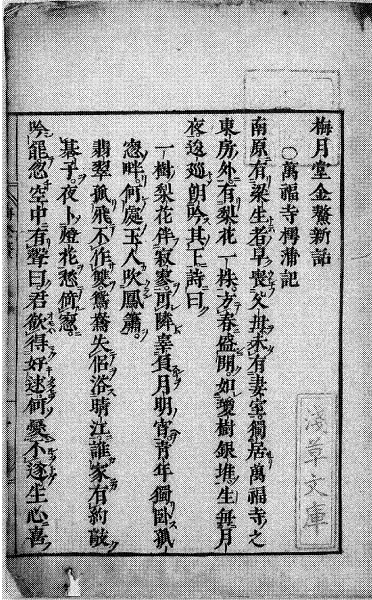 梅月堂金鰲新話
○萬福寺樗蒲記
南原有梁生者早喪父母未有妻室獨居萬福寺之
東房外有梨花一株方春盛開如瓊樹銀堆生每月
夜逡巡朗吟其下詩曰
一樹梨花伴寂寥可憐辜負月明宵青年獨臥孤
窓畔何處玉人吹鳳簫
翡翠孤飛不作雙鴛鴦失侶浴晴江誰家有約敲
碁子夜卜燈花愁倚窓
吟罷忽空中有聲曰君欲得好逑何憂不遂生心喜
淺草文庫